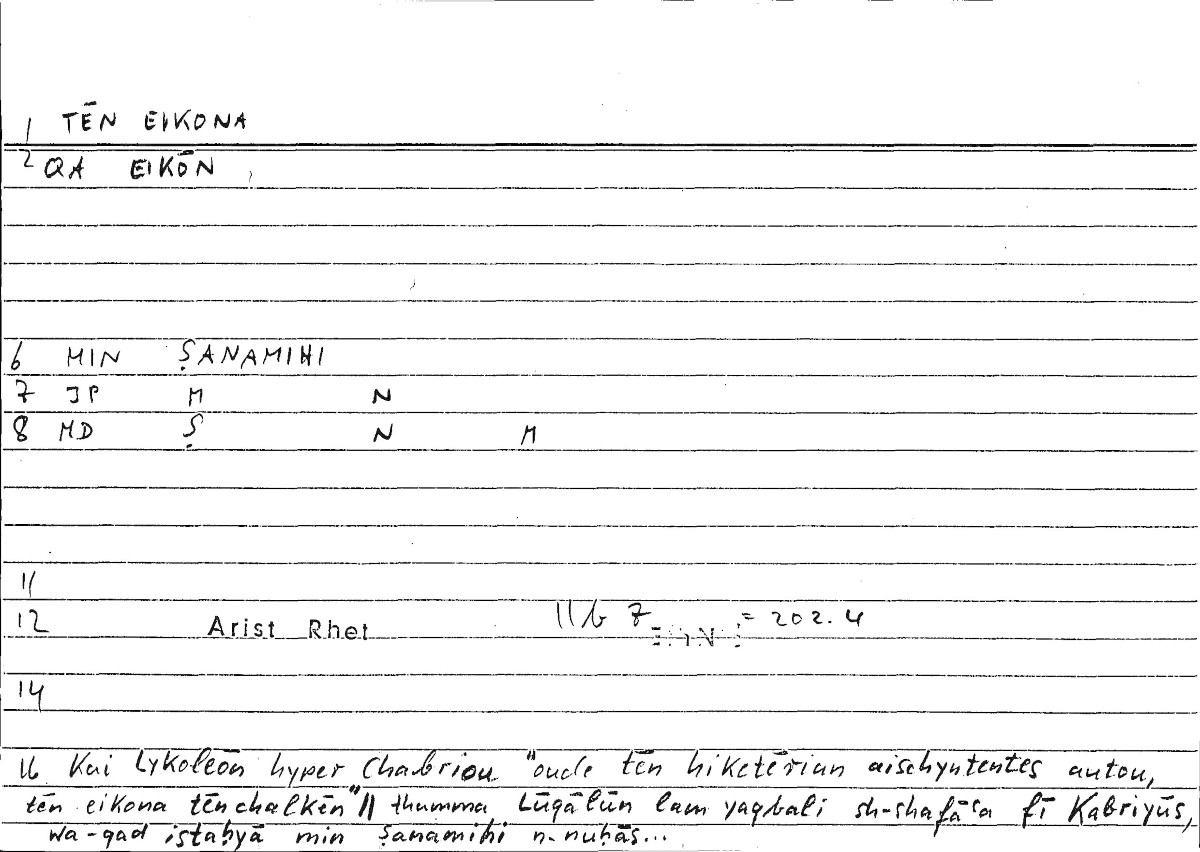 1 TĒN EIKONA
2 QA EIKŌN
6 MIN ṢANAMIHI
7 JP M N
8 MD Ṣ N M
11
12 Arist Rhet 11b 7 = 202.4
14
16 Kai Lykoleōn hyper Chabriou "oude tēn hiketērian aischyntentes autou,
tēn eikona tēn chalkēn" // thumma Lūqālūn lam yaqbali sh-shafāʿa fī Kabriyūs,
wa-qad istaḥyā min ṣanamihi n-nuḥās...